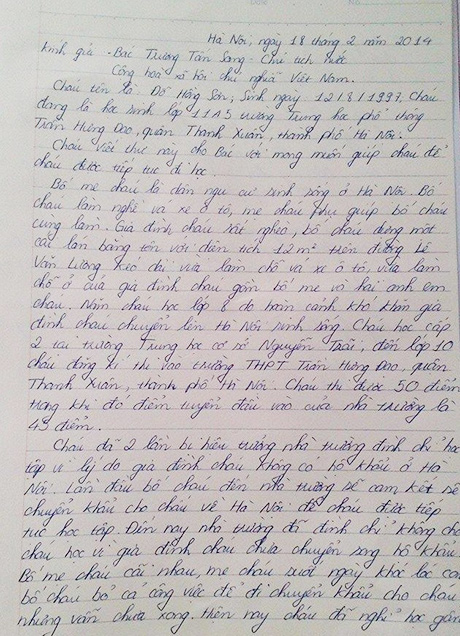 Hà Nội, ngày 18 tháng 2 năm 2014
Kính gửi - Bác Trương Tấn Sang - Chủ tịch nước
Cộng hoà xã hội chủ nghĩa Việt Nam.
Cháu tên là: Đỗ Hồng Sơn, Sinh ngày 12/8/1997. Cháu
đang là học sinh lớp 11A5 trường trung học phổ thông
Trần Hưng Đạo, quận Thanh Xuân, thành phố Hà Nội.
Cháu viết thư này cho Bác với mong muốn giúp cháu để
cháu được tiếp tục đi học.
Bố mẹ cháu là dân ngụ cư sinh sống ở Hà Nội. Bố
cháu làm nghề vá xe ô tô, mẹ cháu phụ giúp bố cháu
cùng làm. Gia đình cháu rất nghèo, bố cháu dựng một
cái lán bằng tôn với diện tích 12m² trên đường Lê
Văn Lương kéo dài vừa làm chỗ vá xe ô tô, vừa làm
chỗ ở của gia đình cháu gồm bố mẹ và hai anh em
cháu. Năm cháu học lớp 8 do hoàn cảnh khó khăn gia
đình cháu chuyển lên Hà Nội sinh sống. Cháu học cấp
2 tại trường Trung học cơ sở Nguyễn Trãi, đến lớp 10
cháu đăng kí thi vào trường THPT Trần Hưng Đạo, quận
Thanh Xuân, thành phố Hà Nội. Cháu thi được 50 điểm
trong khi đó điểm tuyển đầu vào của nhà trường là
43 điểm.
Cháu đã 2 lần bị hiệu trưởng nhà trường đình chỉ học
tập vì lý do gia đình cháu không có hộ khẩu ở Hà
Nội. Lần đầu bố cháu đến nhà trường sẽ cam kết sẽ
chuyển khẩu cho cháu về Hà Nội để cháu được tiếp
tục học tập. Đến nay nhà trường đã đình chỉ không cho
cháu học vì gia đình cháu chưa chuyển song hộ khẩu.
Bố mẹ cháu cãi nhau, mẹ cháu suốt ngày khóc lóc còn
bố cháu bỏ cả công việc để đi chuyển khẩu cho cháu
nhưng vẫn chưa xong. Hiện nay cháu đã nghỉ học gần